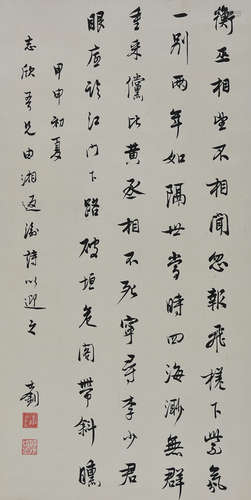 衡巫相望不相聞忽報飛槎下紫氛
一別兩年如隔世當時四海渺無群
重來儻比黃丞相不死寧尋李少君
眼底峽江門下路破垣危閣帶斜曛
甲申初夏
志欣吾兄由湘返渝詩以迎之